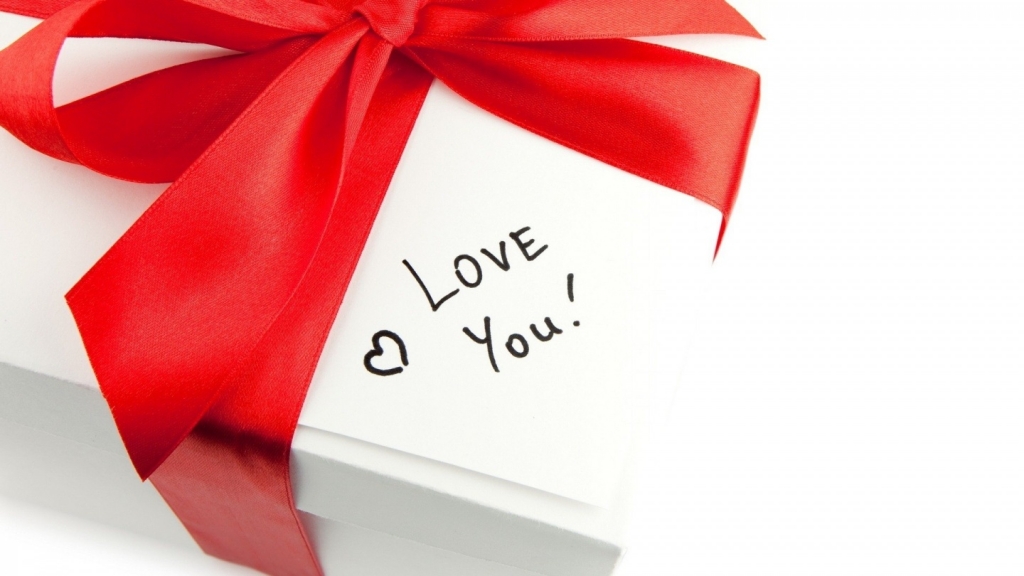 LOVE
You!